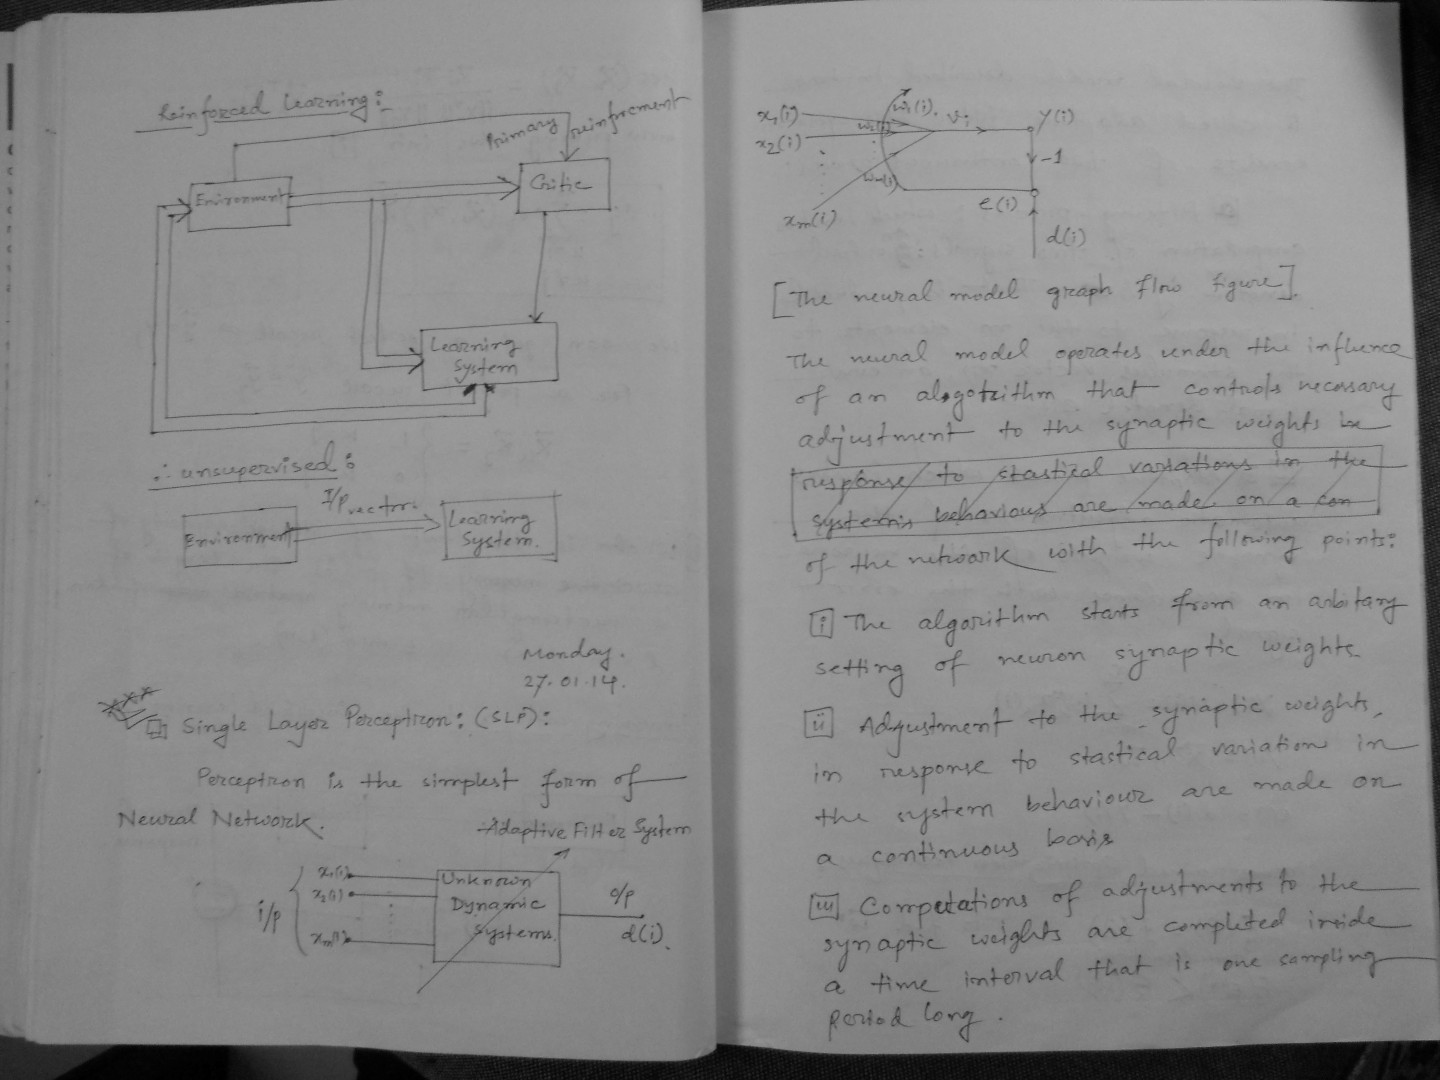 Reinforced Learning:
Primary reinfrcment
Environment
Critic
Learning
System
∴ unsupervised:
I/P vectors
Environment
Learning
System.
Monday.
27.01.14.
Single Layer Perceptron: (SLP):
Perceptron is the simplest form of
Neural Network.
Adaptive Filter System
i/p
x₁(i)
x₂(i)
xₘ(i)
Unknown
Dynamic
Systems.
o/p
d(i).
x₁(i)
x₂(i)
xₘ(i)
w₁(i).
w₂(i)
wₘ(i)
vᵢ
y(i)
-1
e(i)
d(i)
[The neural model graph flow figure].
The neural model operates under the influence
of an alogotrithm that controls necessary
adjustment to the synaptic weights be
response to stastical variations in the
system's behaviour are made on a con
of the network with the following points:
i The algorithm starts from an arbitary
setting of neuron synaptic weights.
ii Adjustment to the synaptic weights,
in response to stastical variation in
the system behaviour are made on
a continuous basis
iii Computations of adjustments to the
synaptic weights are completed inside
a time interval that is one sampling
period long.